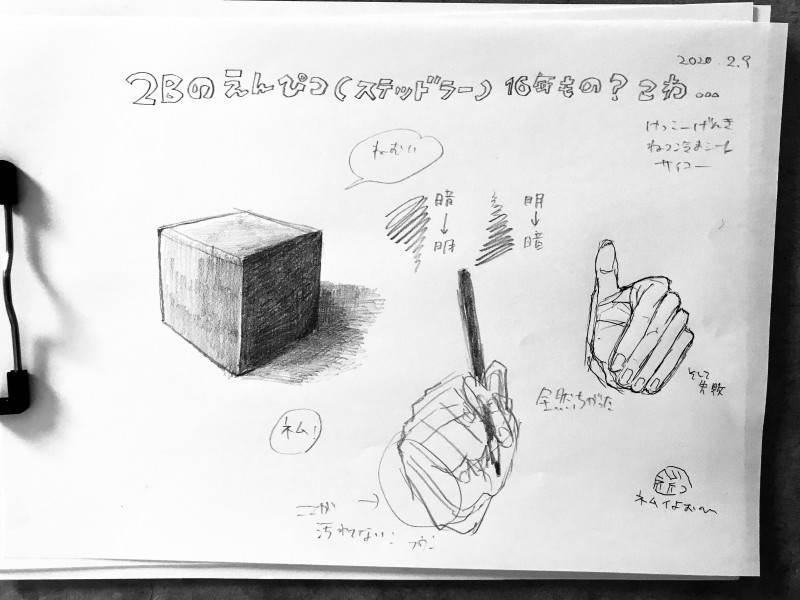 2020.2.9
2Bのえんぴつ(ステッドラー) 16年もの?こわ...
けっこーげんき
ねつ冷ましシート
サイコー
ねむい
暗
↓
明
明
↓
暗
全然ちがった
そして
失敗
ネム!
ここが
汚れない!
ネムイよぉ〜